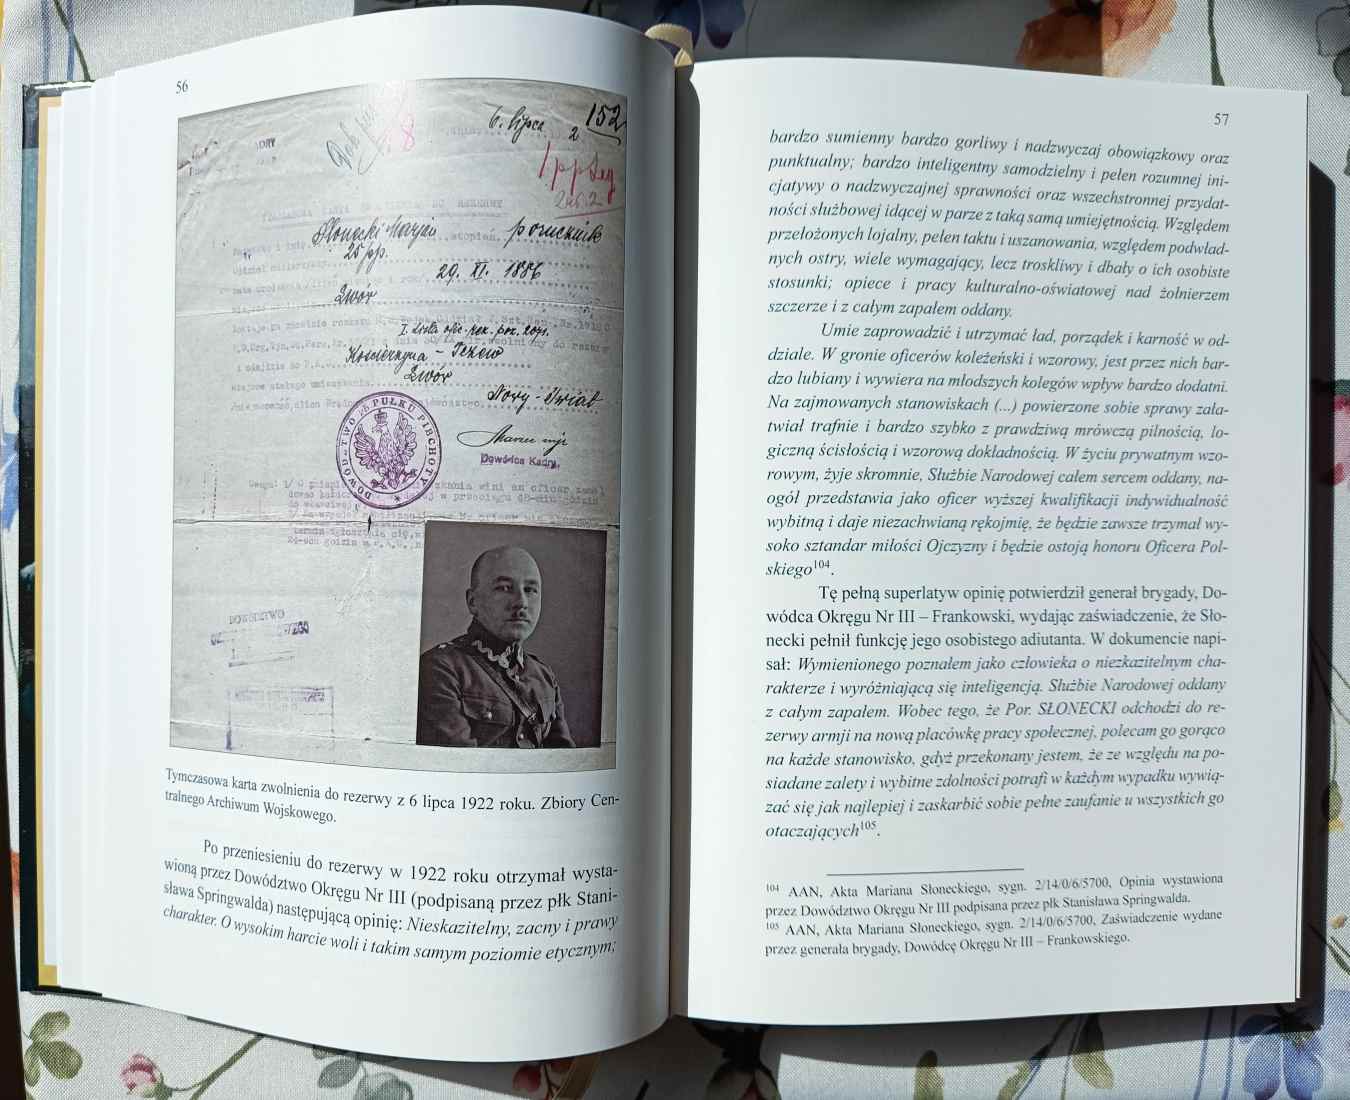 56
6. lipca 2 152
1 p p Leg
Słonecki Marjan stopień porucznik
25 pp.
29. XI. 1886
Dwór
I. Lista ofic. rez. poz. 2071.
Kościerzyna - Tczew
Dwór
Nowy-Świat
DOWÓDZTWO PUŁKU PIECHOTY
Dowódca Kadry.
DOWÓDZTWO
Tymczasowa karta zwolnienia do rezerwy z 6 lipca 1922 roku. Zbiory Cen-
tralnego Archiwum Wojskowego.
Po przeniesieniu do rezerwy w 1922 roku otrzymał wysta-
wioną przez Dowództwo Okręgu Nr III (podpisaną przez płk Stani-
sława Springwalda) następującą opinię: Nieskazitelny, zacny i prawy
charakter. O wysokim harcie woli i takim samym poziomie etycznym;
57
bardzo sumienny bardzo gorliwy i nadzwyczaj obowiązkowy oraz
punktualny; bardzo inteligentny samodzielny i pełen rozumnej ini-
cjatywy o nadzwyczajnej sprawności oraz wszechstronnej przydat-
ności służbowej idącej w parze z taką samą umiejętnością. Względem
przełożonych lojalny, pełen taktu i uszanowania, względem podwład-
nych ostry, wiele wymagający, lecz troskliwy i dbały o ich osobiste
stosunki; opiece i pracy kulturalno-oświatowej nad żołnierzem
szczerze i z całym zapałem oddany.
Umie zaprowadzić i utrzymać ład, porządek i karność w od-
dziale. W gronie oficerów koleżeński i wzorowy, jest przez nich bar-
dzo lubiany i wywiera na młodszych kolegów wpływ bardzo dodatni.
Na zajmowanych stanowiskach (...) powierzone sobie sprawy zała-
twiał trafnie i bardzo szybko z prawdziwą mrówczą pilnością, lo-
giczną ścisłością i wzorową dokładnością. W życiu prywatnym wzo-
rowym, żyje skromnie, Służbie Narodowej całem sercem oddany, na-
ogół przedstawia jako oficer wyższej kwalifikacji indywidualność
wybitną i daje niezachwianą rękojmię, że będzie zawsze trzymał wy-
soko sztandar miłości Ojczyzny i będzie ostoją honoru Oficera Pol-
skiego104.
Tę pełną superlatyw opinię potwierdził generał brygady, Do-
wódca Okręgu Nr III – Frankowski, wydając zaświadczenie, że Sło-
necki pełnił funkcję jego osobistego adiutanta. W dokumencie napi-
sał: Wymienionego poznałem jako człowieka o niezkazitelnym cha-
rakterze i wyróżniającą się inteligencją. Służbie Narodowej oddany
z całym zapałem. Wobec tego, że Por. SŁONECKI odchodzi do re-
zerwy armji na nową placówkę pracy społecznej, polecam go gorąco
na każde stanowisko, gdyż przekonany jestem, że ze względu na po-
siadane zalety i wybitne zdolności potrafi w każdym wypadku wywią-
zać się jak najlepiej i zaskarbić sobie pełne zaufanie u wszystkich go
otaczających105.
104 AAN, Akta Mariana Słoneckiego, sygn. 2/14/0/6/5700, Opinia wystawiona
przez Dowództwo Okręgu Nr III podpisana przez płk Stanisława Springwalda.
105 AAN, Akta Mariana Słoneckiego, sygn. 2/14/0/6/5700, Zaświadczenie wydane
przez generała brygady, Dowódcę Okręgu Nr III – Frankowskiego.